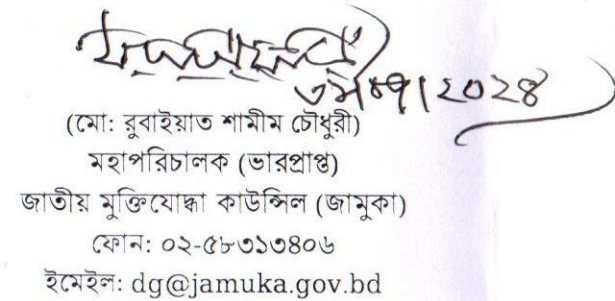 ২০২৪
(মো: রুবাইয়াত শামীম চৌধুরী)
মহাপরিচালক (ভারপ্রাপ্ত)
জাতীয় মুক্তিযোদ্ধা কাউন্সিল (জামুকা)
ফোন: ০২-৫৮৩১৩৪০৬
ইমেইল: dg@jamuka.gov.bd